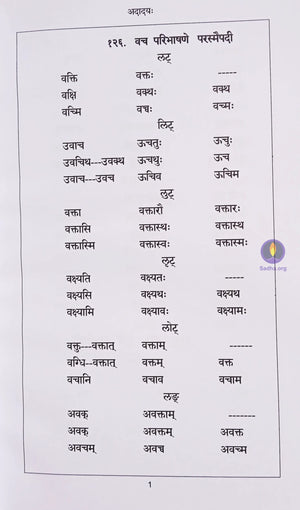 अदादयः
१२६. वच परिभाषणे परस्मैपदी
लट्
वक्ति वक्तः -----
वक्षि वक्थः वक्थ
वच्मि वच्वः वच्मः
लिट्
उवाच ऊचतुः ऊचुः
उवचिथ---उवक्थ ऊचथुः ऊच
उवाच---उवच ऊचिव ऊचिम
लुट्
वक्ता वक्तारौ वक्तारः
वक्तासि वक्तास्थः वक्तास्थ
वक्तास्मि वक्तास्वः वक्तास्मः
लृट्
वक्ष्यति वक्ष्यतः -----
वक्ष्यसि वक्ष्यथः वक्ष्यथ
वक्ष्यामि वक्ष्यावः वक्ष्यामः
लोट्
वक्तु---वक्तात् वक्ताम् ------
वग्धि---वक्तात् वक्तम् वक्त
वचानि वचाव वचाम
लङ्
अवक् अवक्ताम् -------
अवक् अवक्तम् अवक्त
अवचम् अवच्व अवच्म
1
Sadha.org